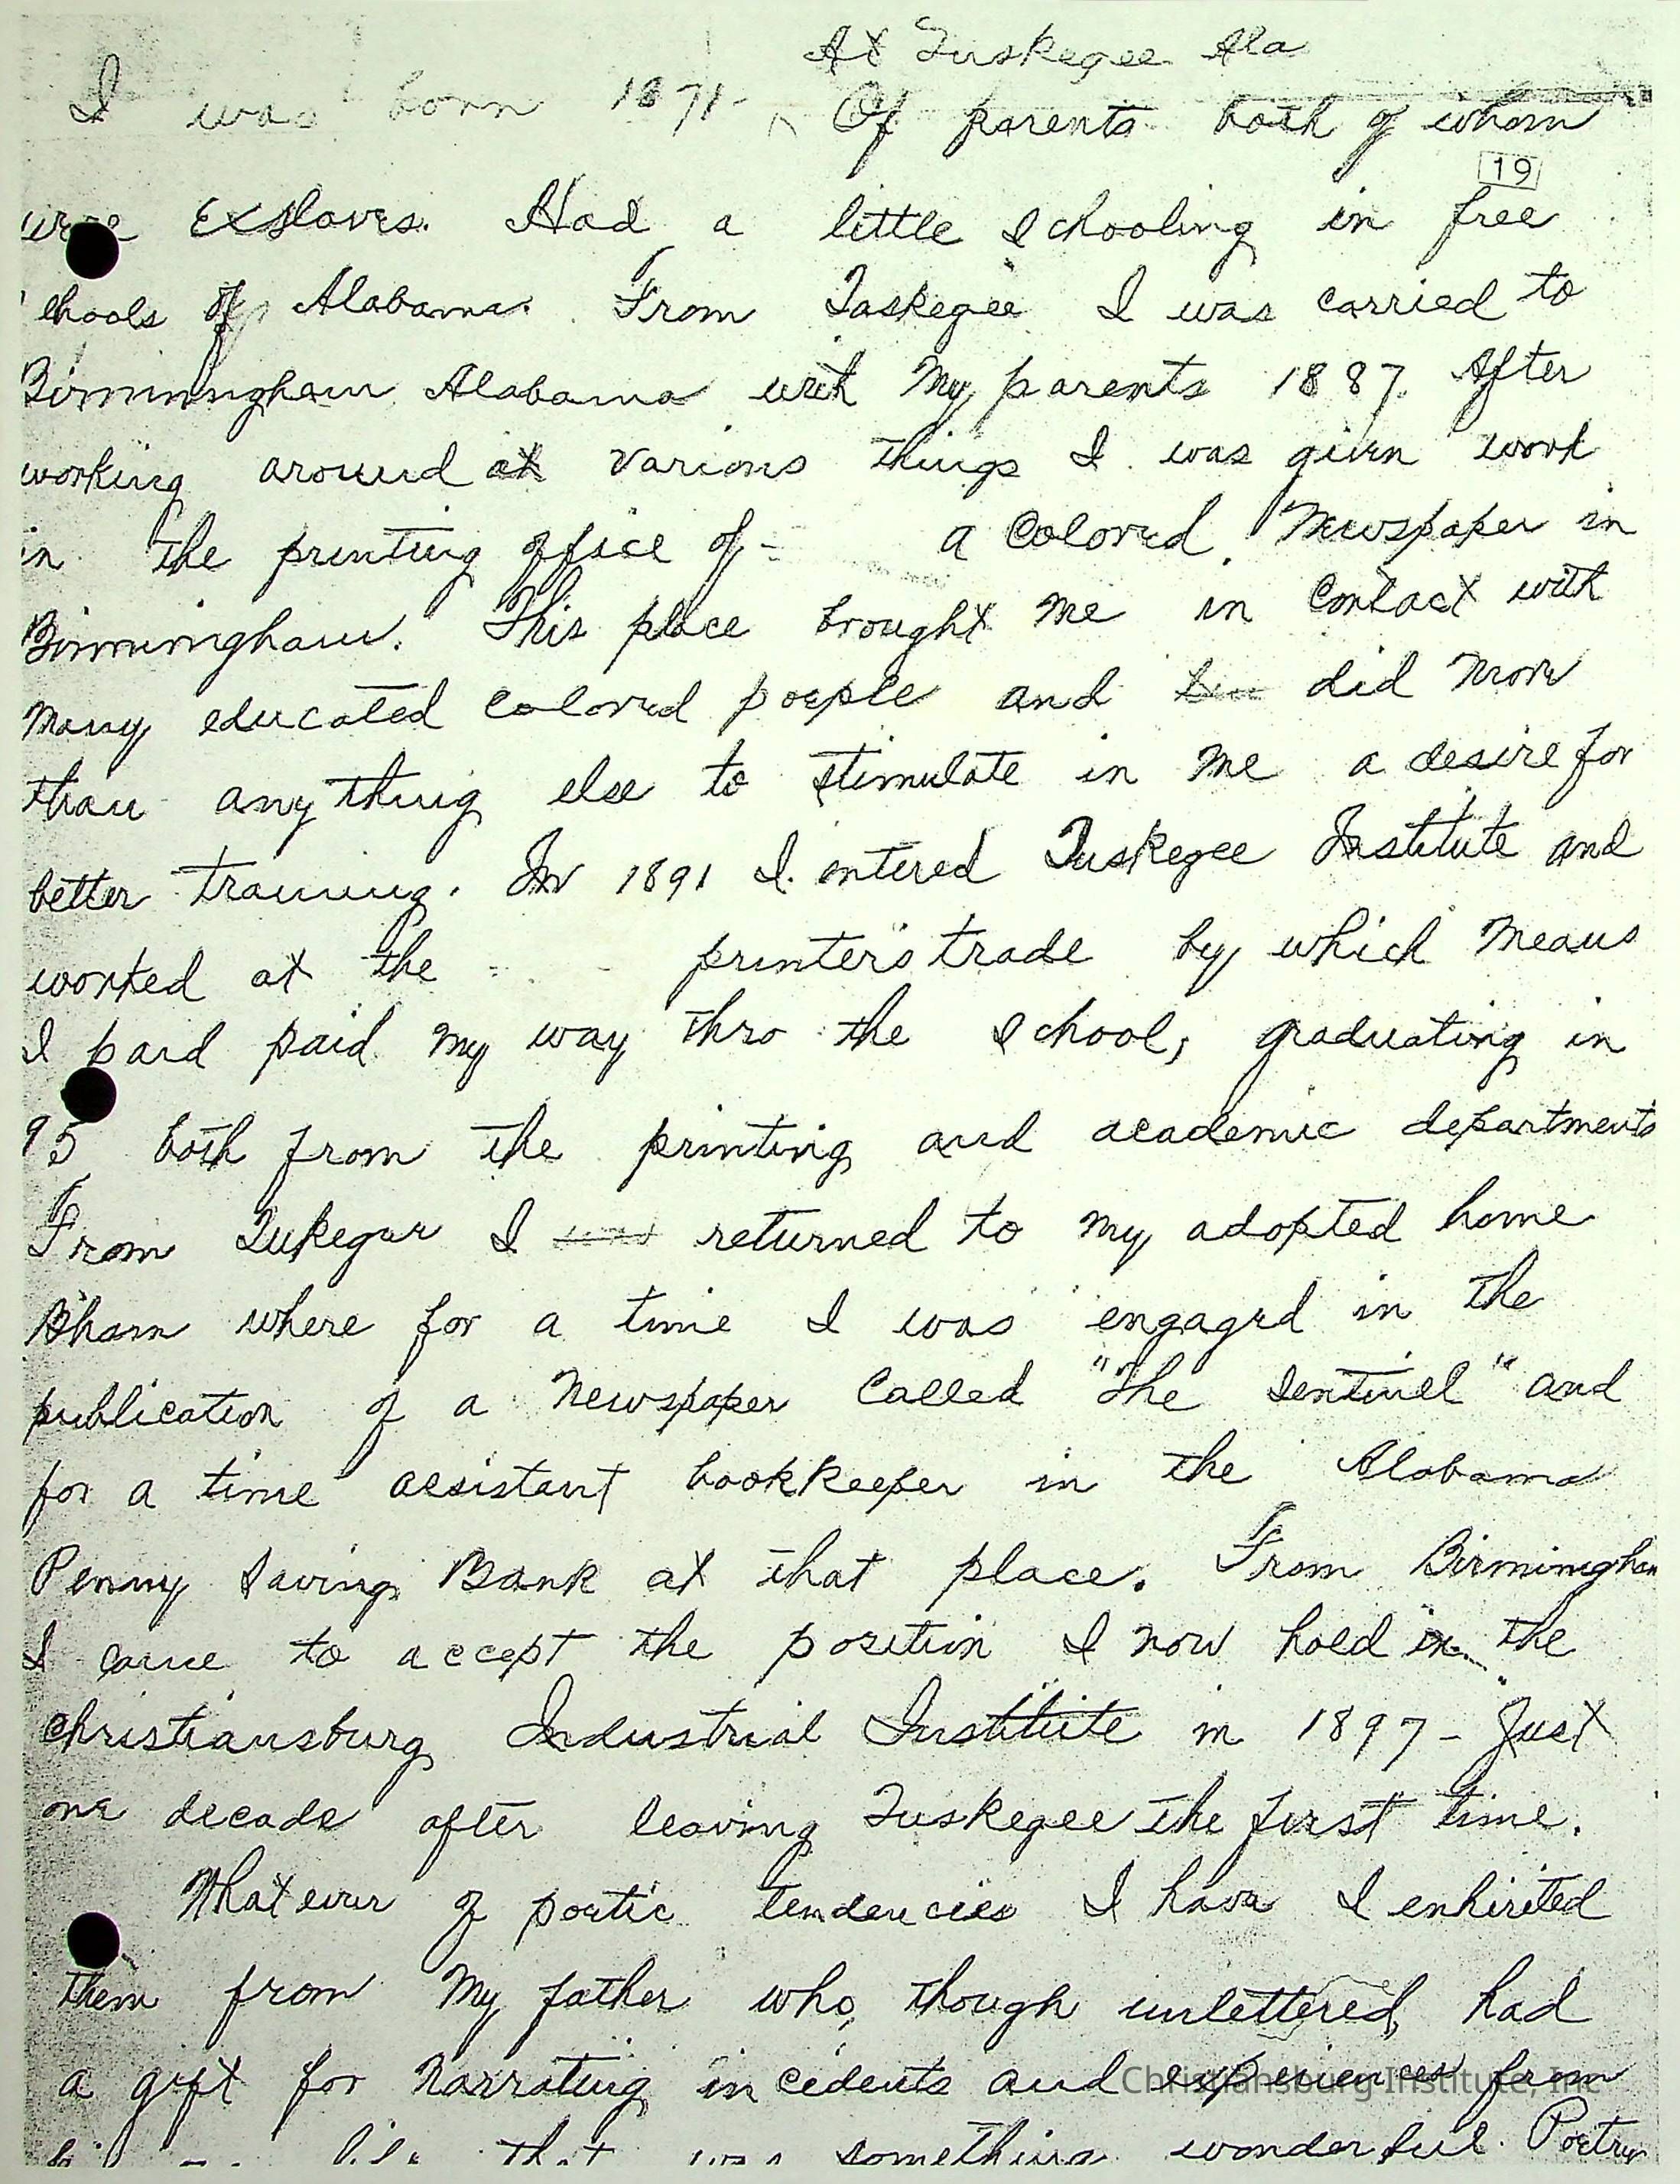 At Tuskegee Ala
I was born 1871- Of parents both of whom
19
were Exslaves. Had a little schooling in free
chools of Alabama. From Taskegee I was carried to
Birminngham Alabama with My parents 1887. After
working around at various things I was given work
in the printing office of - a Colored Newspaper in
Birminingham. This place brought Me in Contact with
Many educated colored poeple and did More
than any thing else to stimulate in Me a desire for
better training. In 1891 I entered Tuskegee Institute and
worked at the printers trade by which Means
I paid paid My way thro the school, graduating in
95 both from the printing and academic departments
From Tukegee I was returned to My adopted home
B'ham where for a time I was engaged in the
publication of a Newspaper Called "The Sentinel" and
for a time assistant bookkeeper in the Alabama
Penny Saving Bank at that place. From Birminigham
I came to accept the position I now hold in the
Christiansburg Industrial Institute in 1897 - Just
one decade after leaving Tuskegee the first time.
What ever of poetic tendencies I have I enhirited
them from My father who, though unlettered, had
a gift for Narrating incedents and experiences from
Christiansburg Institute, Inc
life that was something wonderful. Poetry